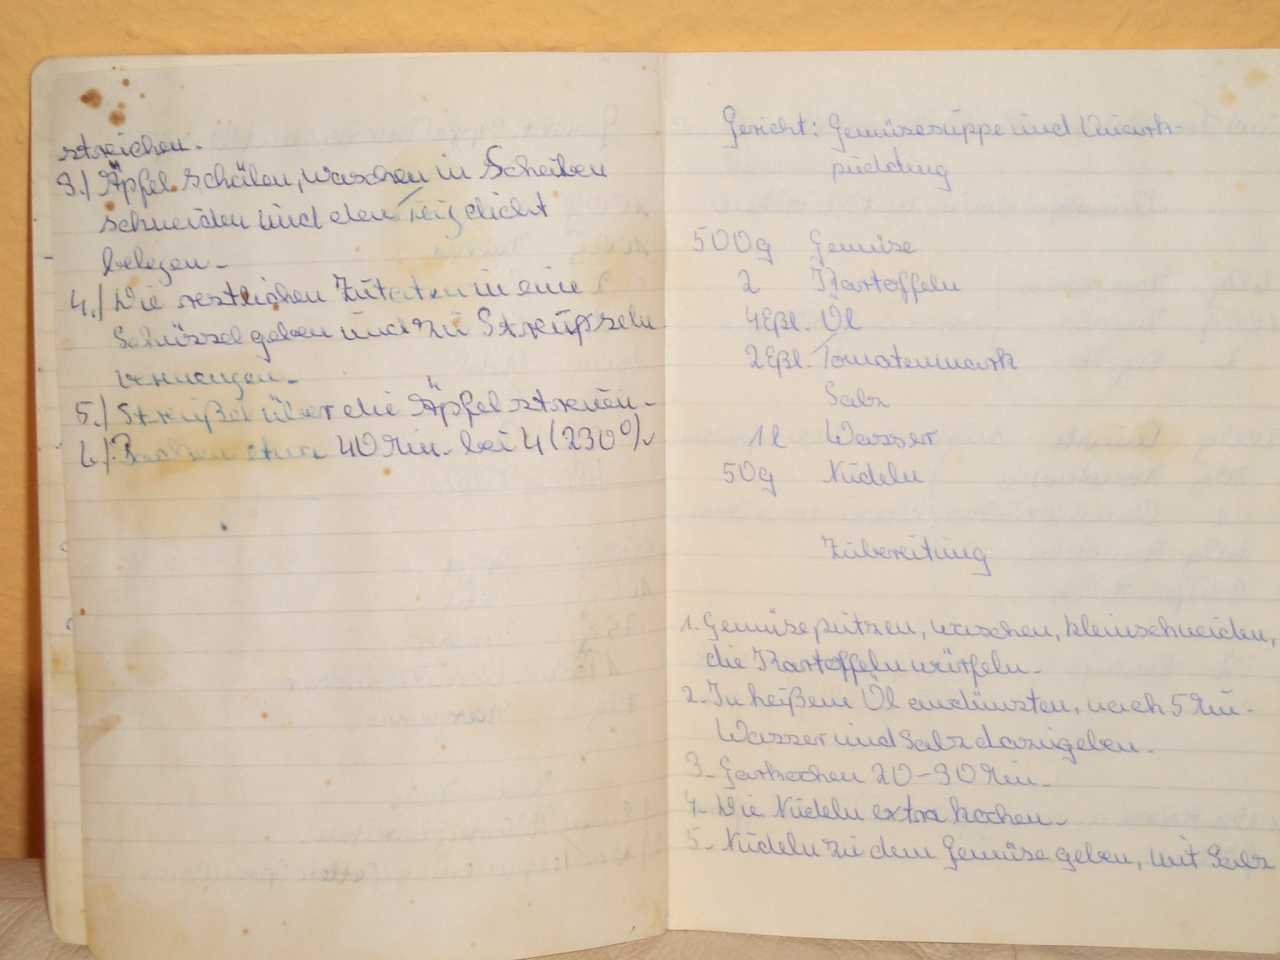 streichen.
3.) Äpfel schälen, waschen in Scheiben
schneiden und den Teig dicht
belegen.
4.) Die restlichen Zutaten in eine
Schüssel geben und zu Streußeln
vermengen.
5.) Streußel über die Äpfel streuen.
6.) Backen etwa 40 Min. bei 4 (230°).
Gericht: Gemüsesuppe und Quark-
pudding
500g Gemüse
2 Kartoffeln
4 Eßl. Öl
2 Eßl. Tomatenmark
Salz
1 l Wasser
50g Nudeln
Zubereitung
1. Gemüse putzen, waschen, kleinschneiden,
die Kartoffeln würfeln.
2. In heißem Öl andünsten, nach 5 Min.
Wasser und Salz dazugeben.
3. Garkochen 20-30 Min.
4. Die Nudeln extra kochen.
5. Nudeln zu dem Gemüse geben, mit Salz